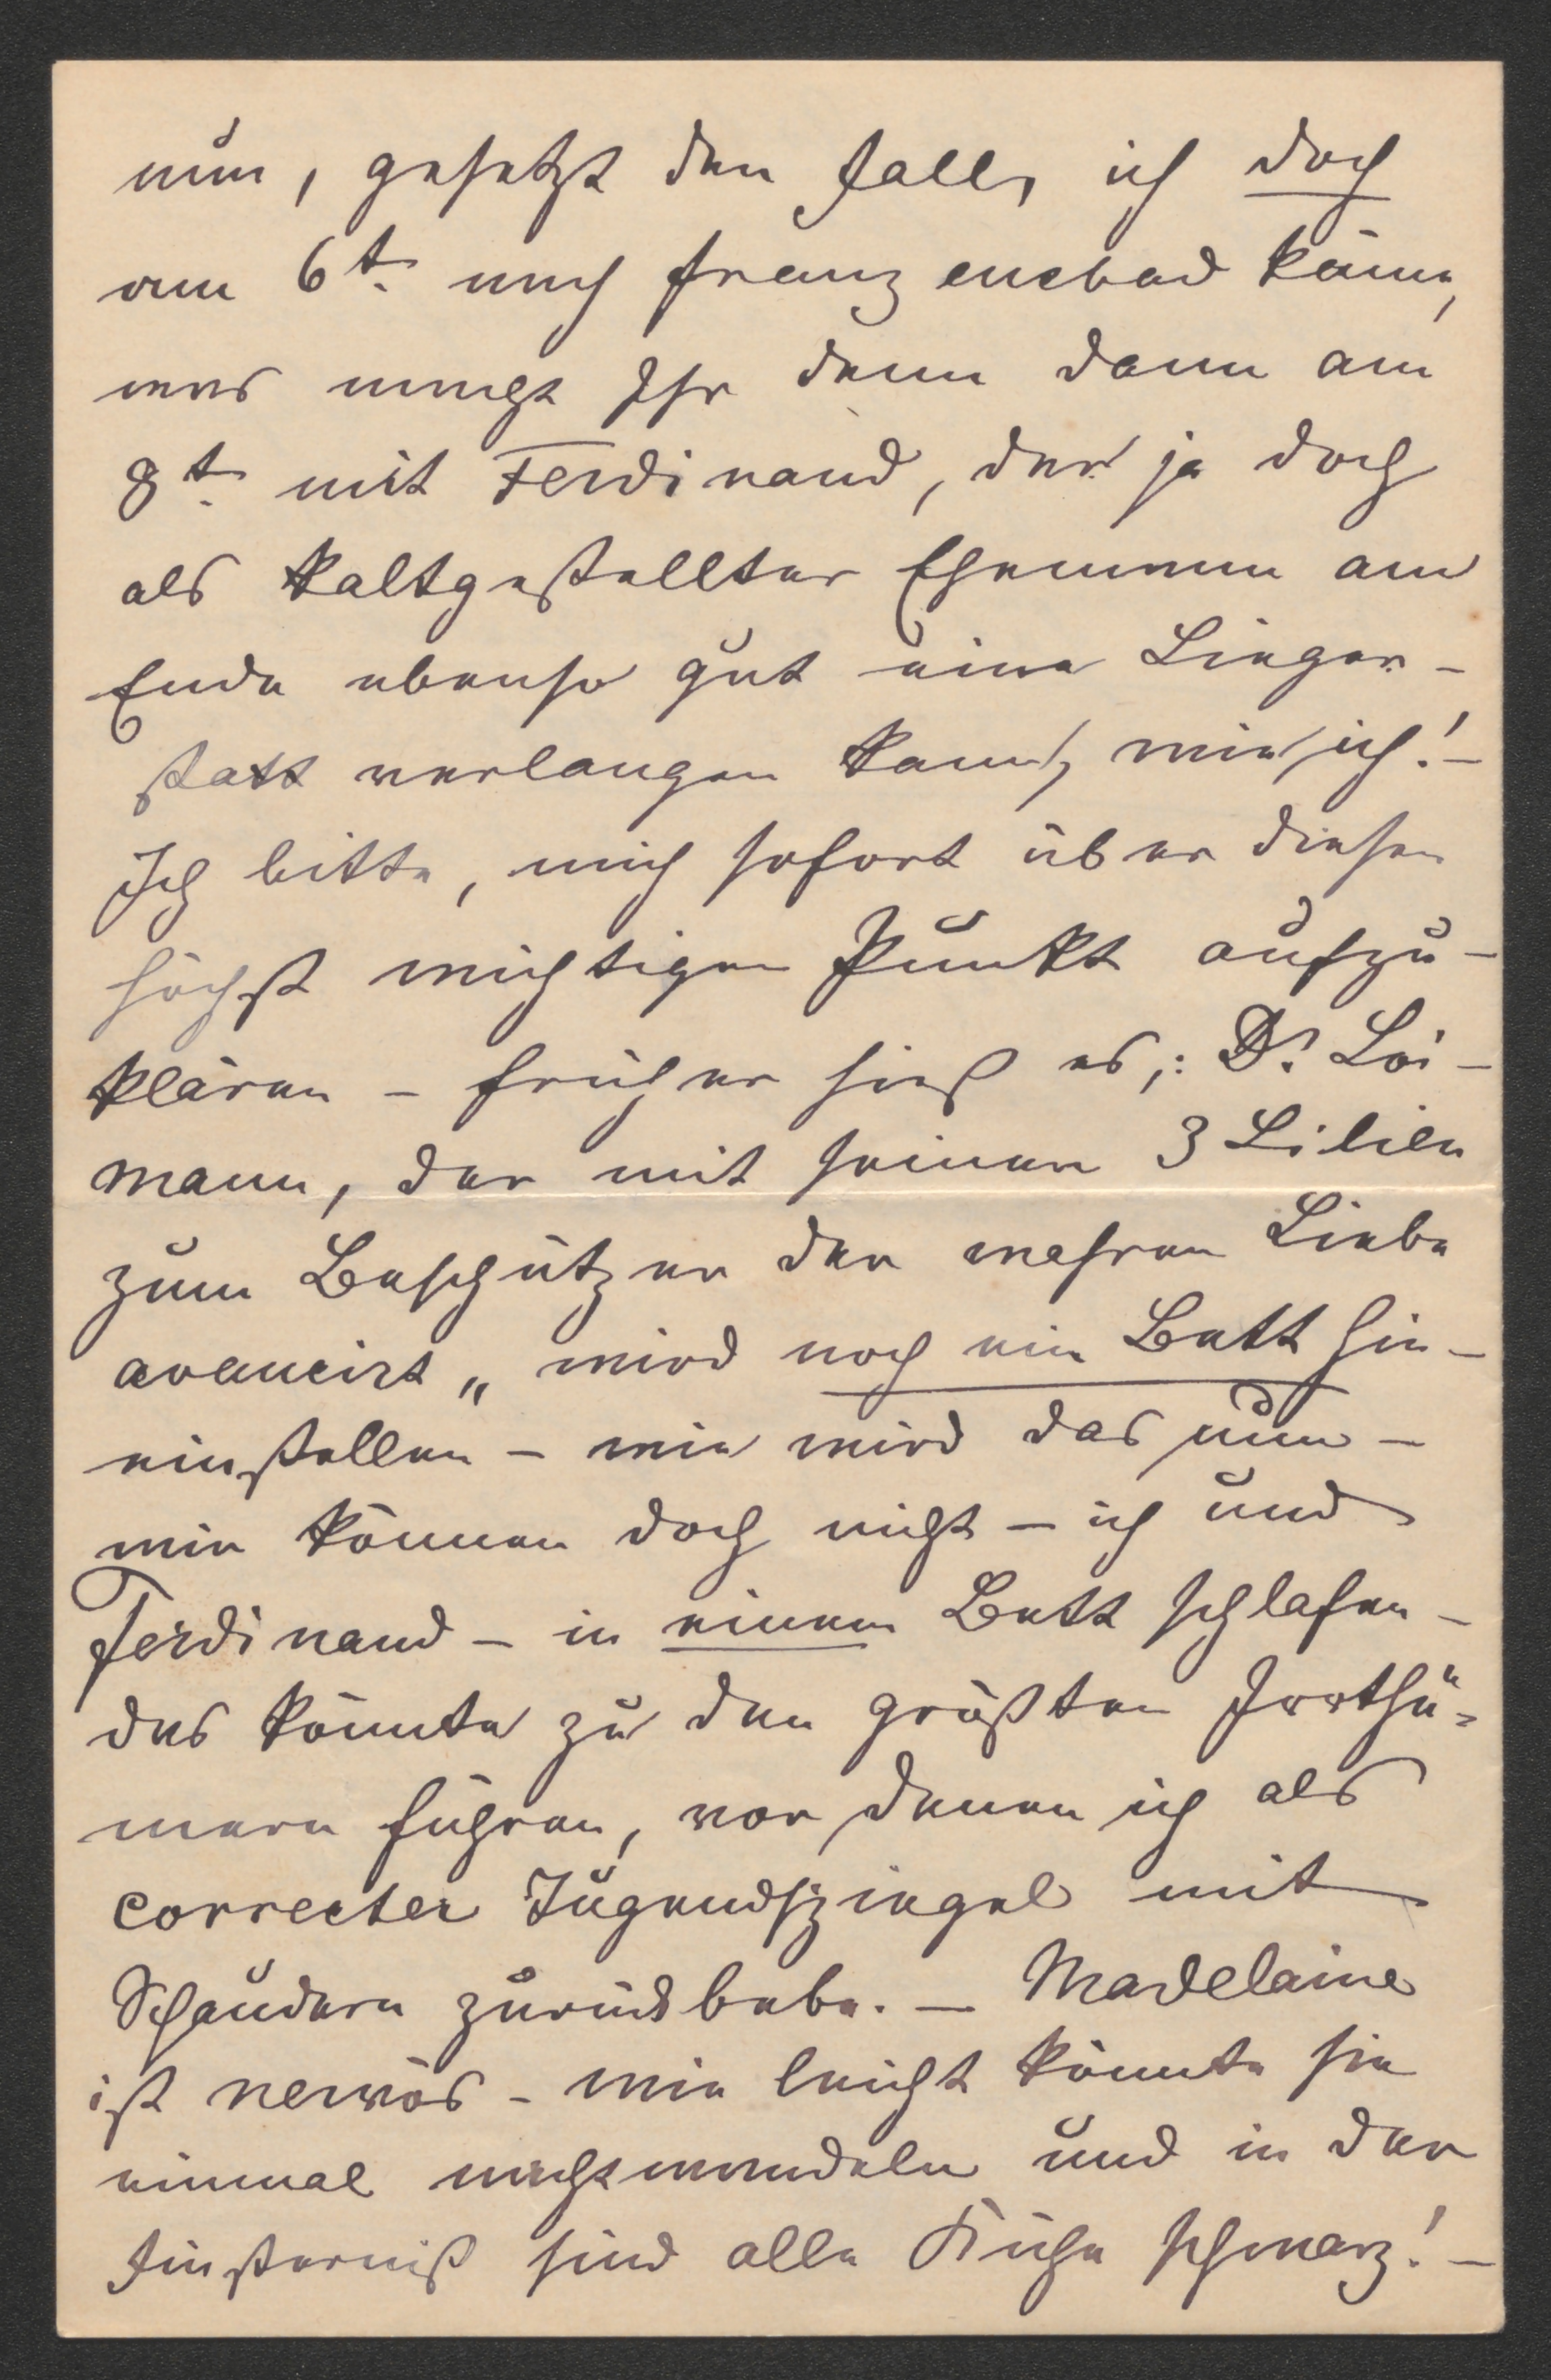 nun, gesetzt den Fall, ich doch
am 6t. nach Franzensbad käme,
was macht Ihr denn dann am
8t. mit Ferdinand, der ja doch
als kaltgestellter Ehemann am
Ende ebenso gut eine Lieger-
statt verlangen kann, wie ich! –
Ich bitte, mich sofort über diesen
höchst wichtigen Punkt aufzu-
klären – früher hieß es,: Dr. Loi-
mann, der mit seinen 3 Lilien
zum Beschützer der wahren Liebe
avancirt „ wird noch ein Bett hin-
einstellen – wie wird das nun –
wir können doch nicht – ich und
Ferdinand – in einem Bett schlafen –
das könnte zu den größten Irrthü-
mern führen, vor denen ich als
correcter Tugendspiegel mit
Schaudern zurückbebe. – Madelaine
ist nervös – wie leicht könnte sie
einmal nachtwandeln und in der
Finsterniß sind alle Kühe schwarz! –